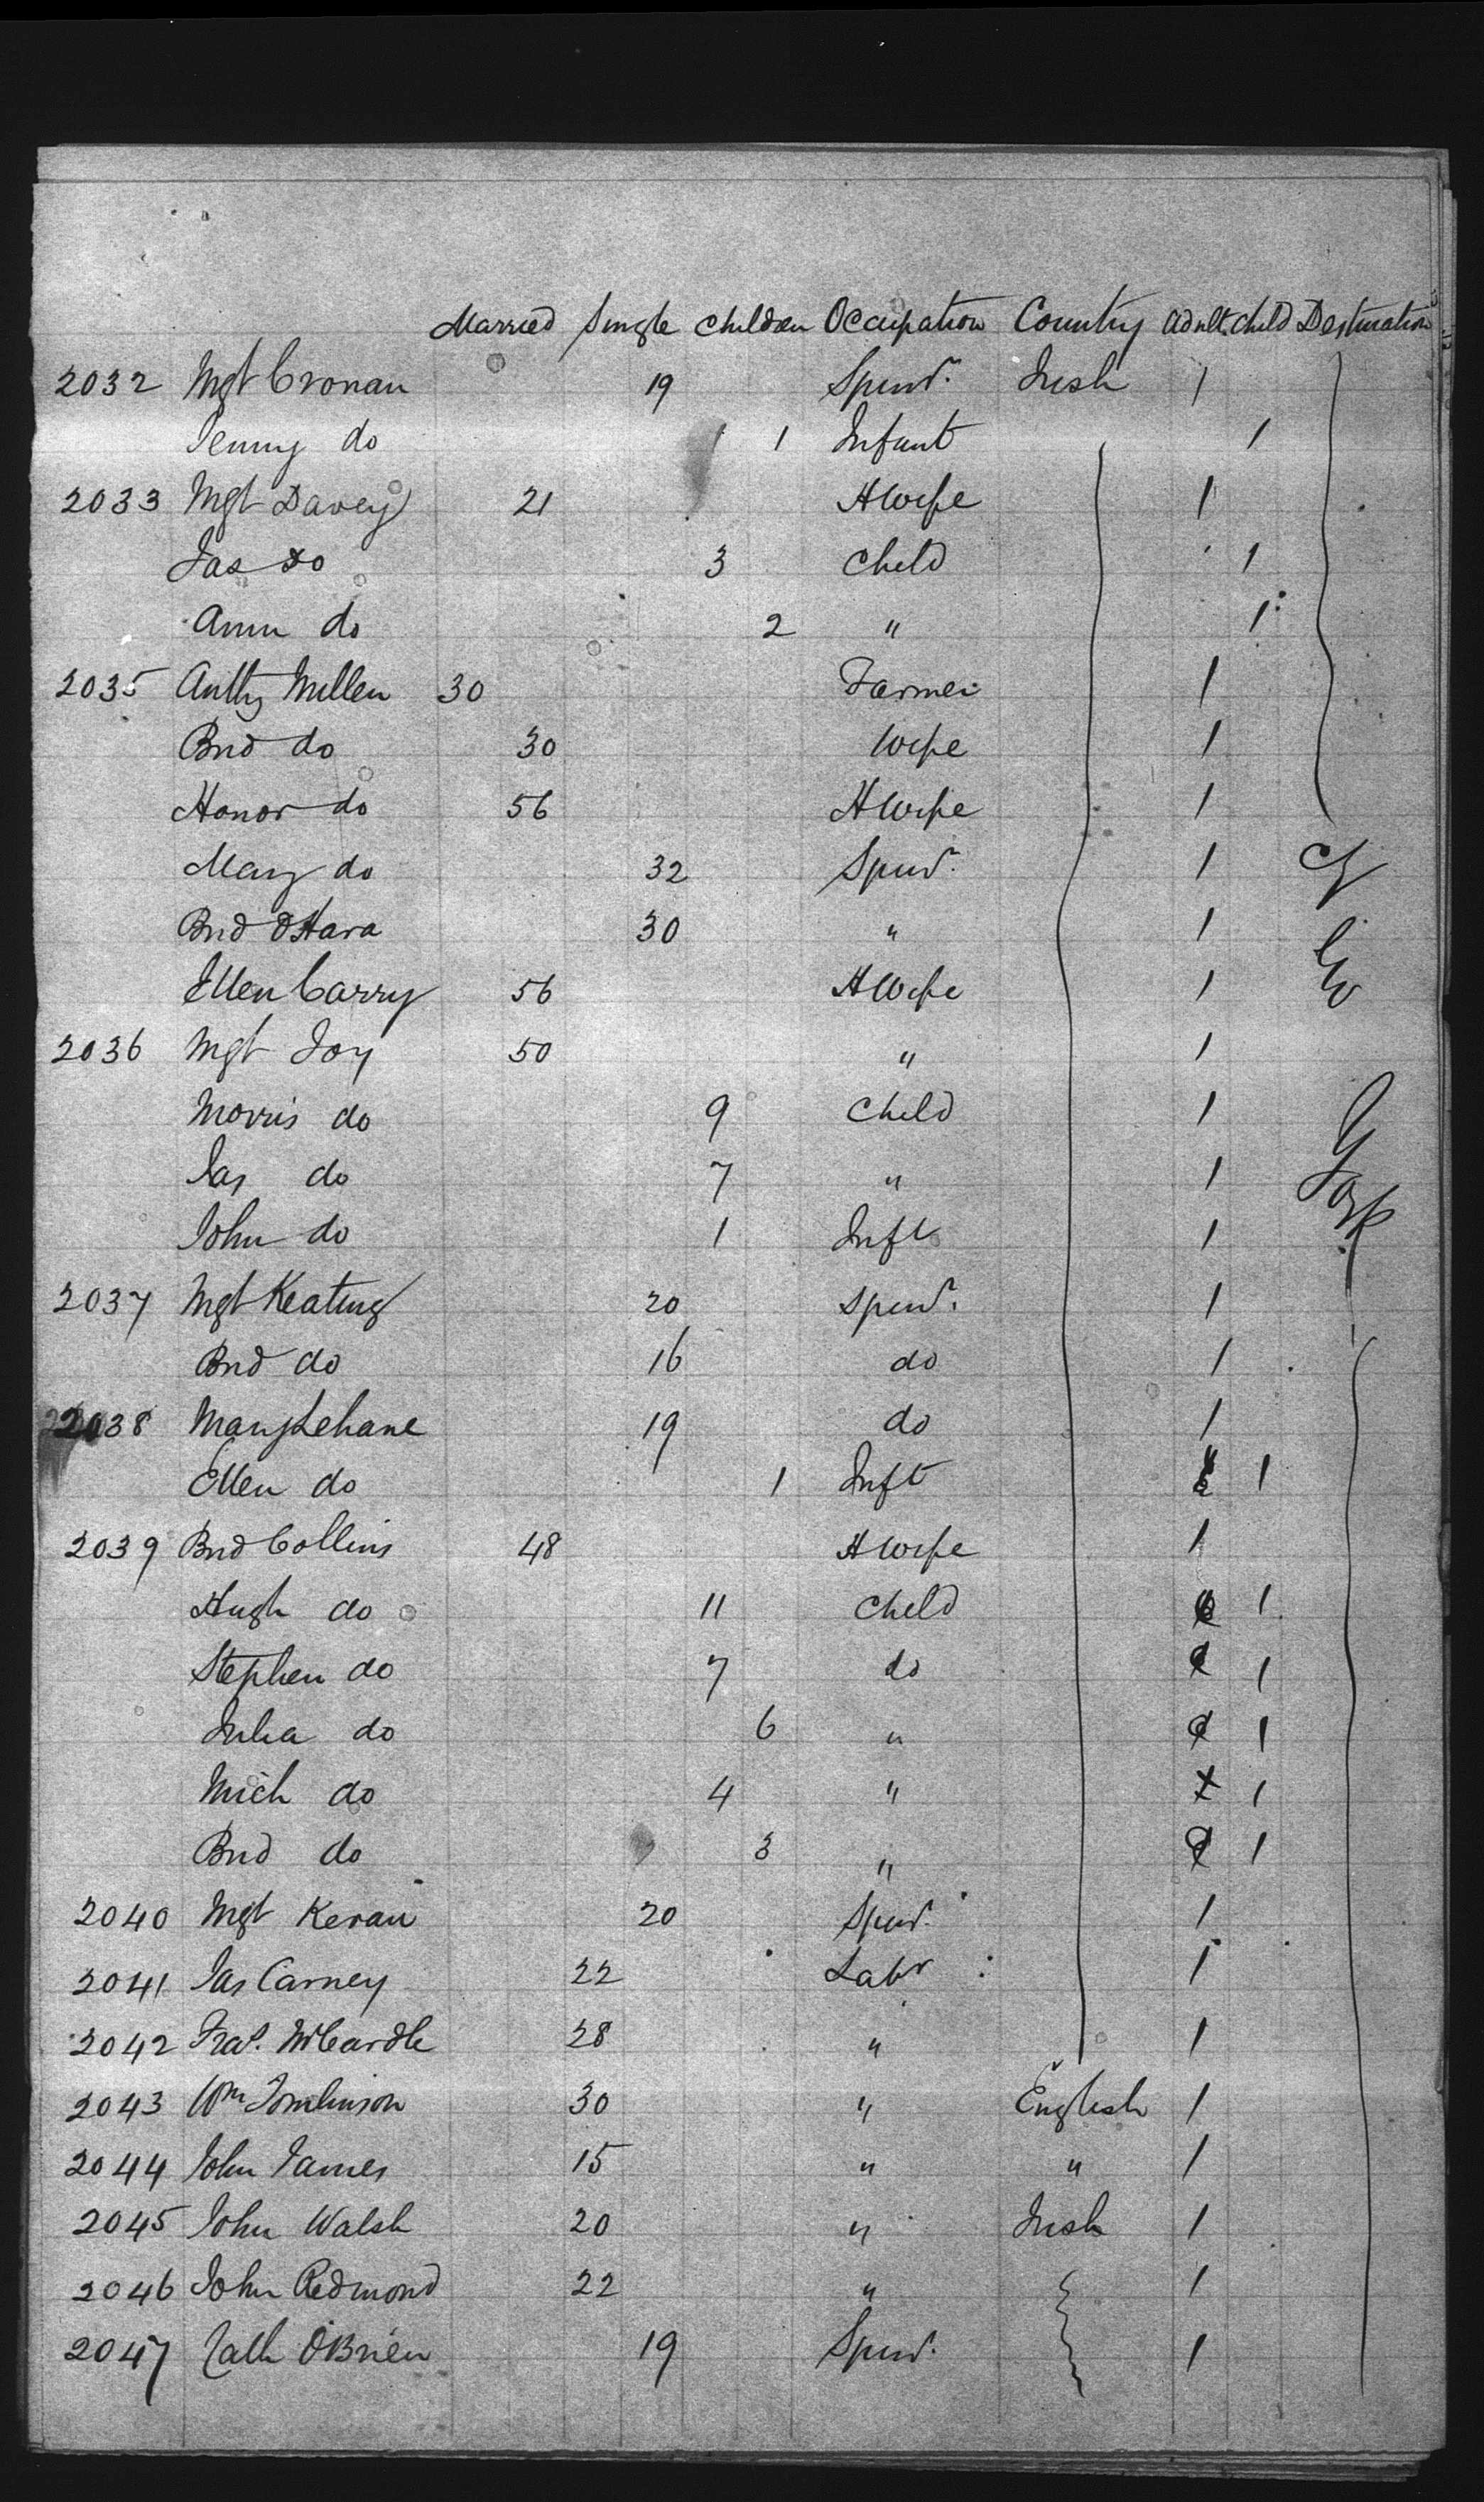 Married Single Children Occupation Country Adult Child Destination
2032 Mgt Cronan 19 Spinr. Irish 1
Jenny do 1 Infant 1
2033 Mgt Davey 21 HWife 1
Jas do 3 Child 1
Ann do 2 " 1
2035 Anthy Millen 30 Farmer 1
Brid do 30 Wife 1
Honor do 56 HWife 1
Mary do 32 Spinr. 1
Brid OHara 30 " 1
Ellen Carry 56 HWife 1
2036 Mgt Joy 50 " 1
Morris do 9 Child 1
Jas do 7 " 1
John do 1 Inft 1
2037 Mgt Keating 20 Spinr. 1
Brid do 16 do 1
2038 Mary Lehane 19 do 1
Ellen do 1 Inft 1
2039 Brid Collins 48 HWife 1
Hugh do 11 Child 1
Stephen do 7 do 1
Julia do 6 " 1
Mich do 4 " 1
Brid do 3 " 1
2040 Mgt Keran 20 Spinr. 1
2041 Jas Carney 22 Labr 1
2042 Fras. McCardle 28 " 1
2043 Wm Tomlinson 30 " English 1
2044 John James 15 " " 1
2045 John Walsh 20 " Irish 1
2046 John Redmond 22 " 1
2047 Cath O'Brien 19 Spinr. 1